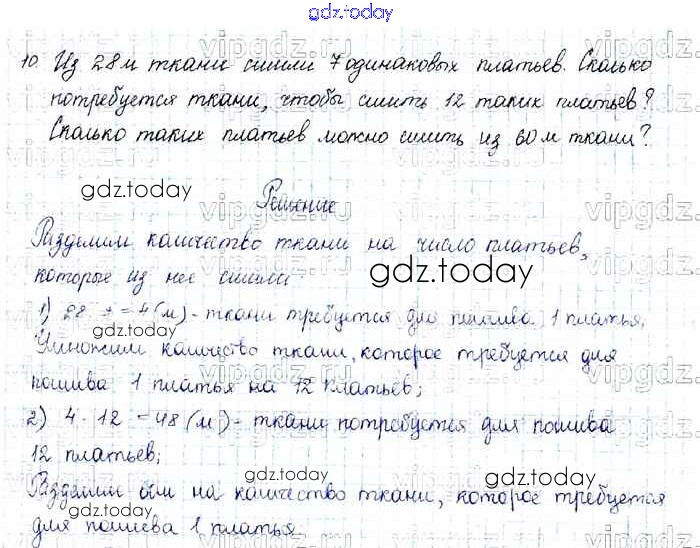 gdz.today
10. Из 28 м ткани сшили 7 одинаковых платьев. Сколько
потребуется ткани, чтобы сшить 12 таких платьев?
Сколько таких платьев можно сшить из 60 м ткани?
gdz.today
Решение
Разделим количество ткани на число платьев,
которые из нее сшили.
gdz.today
1) 28 : 7 = 4 (м) - ткани требуется для пошива 1 платья,
Умножим количество ткани, которое требуется для
пошива 1 платья на 12 платьев;
2) 4 · 12 = 48 (м) - ткани потребуется для пошива
12 платьев;
gdz.today
Разделим 60м на количество ткани, которое требуется
для пошива 1 платья
gdz.today